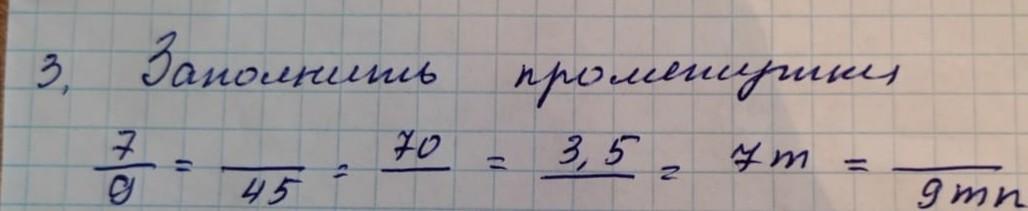 3, Заполнить промежутки
7/9 = __/45 = 70/__ = 3,5/__ = 7m = __/9mn